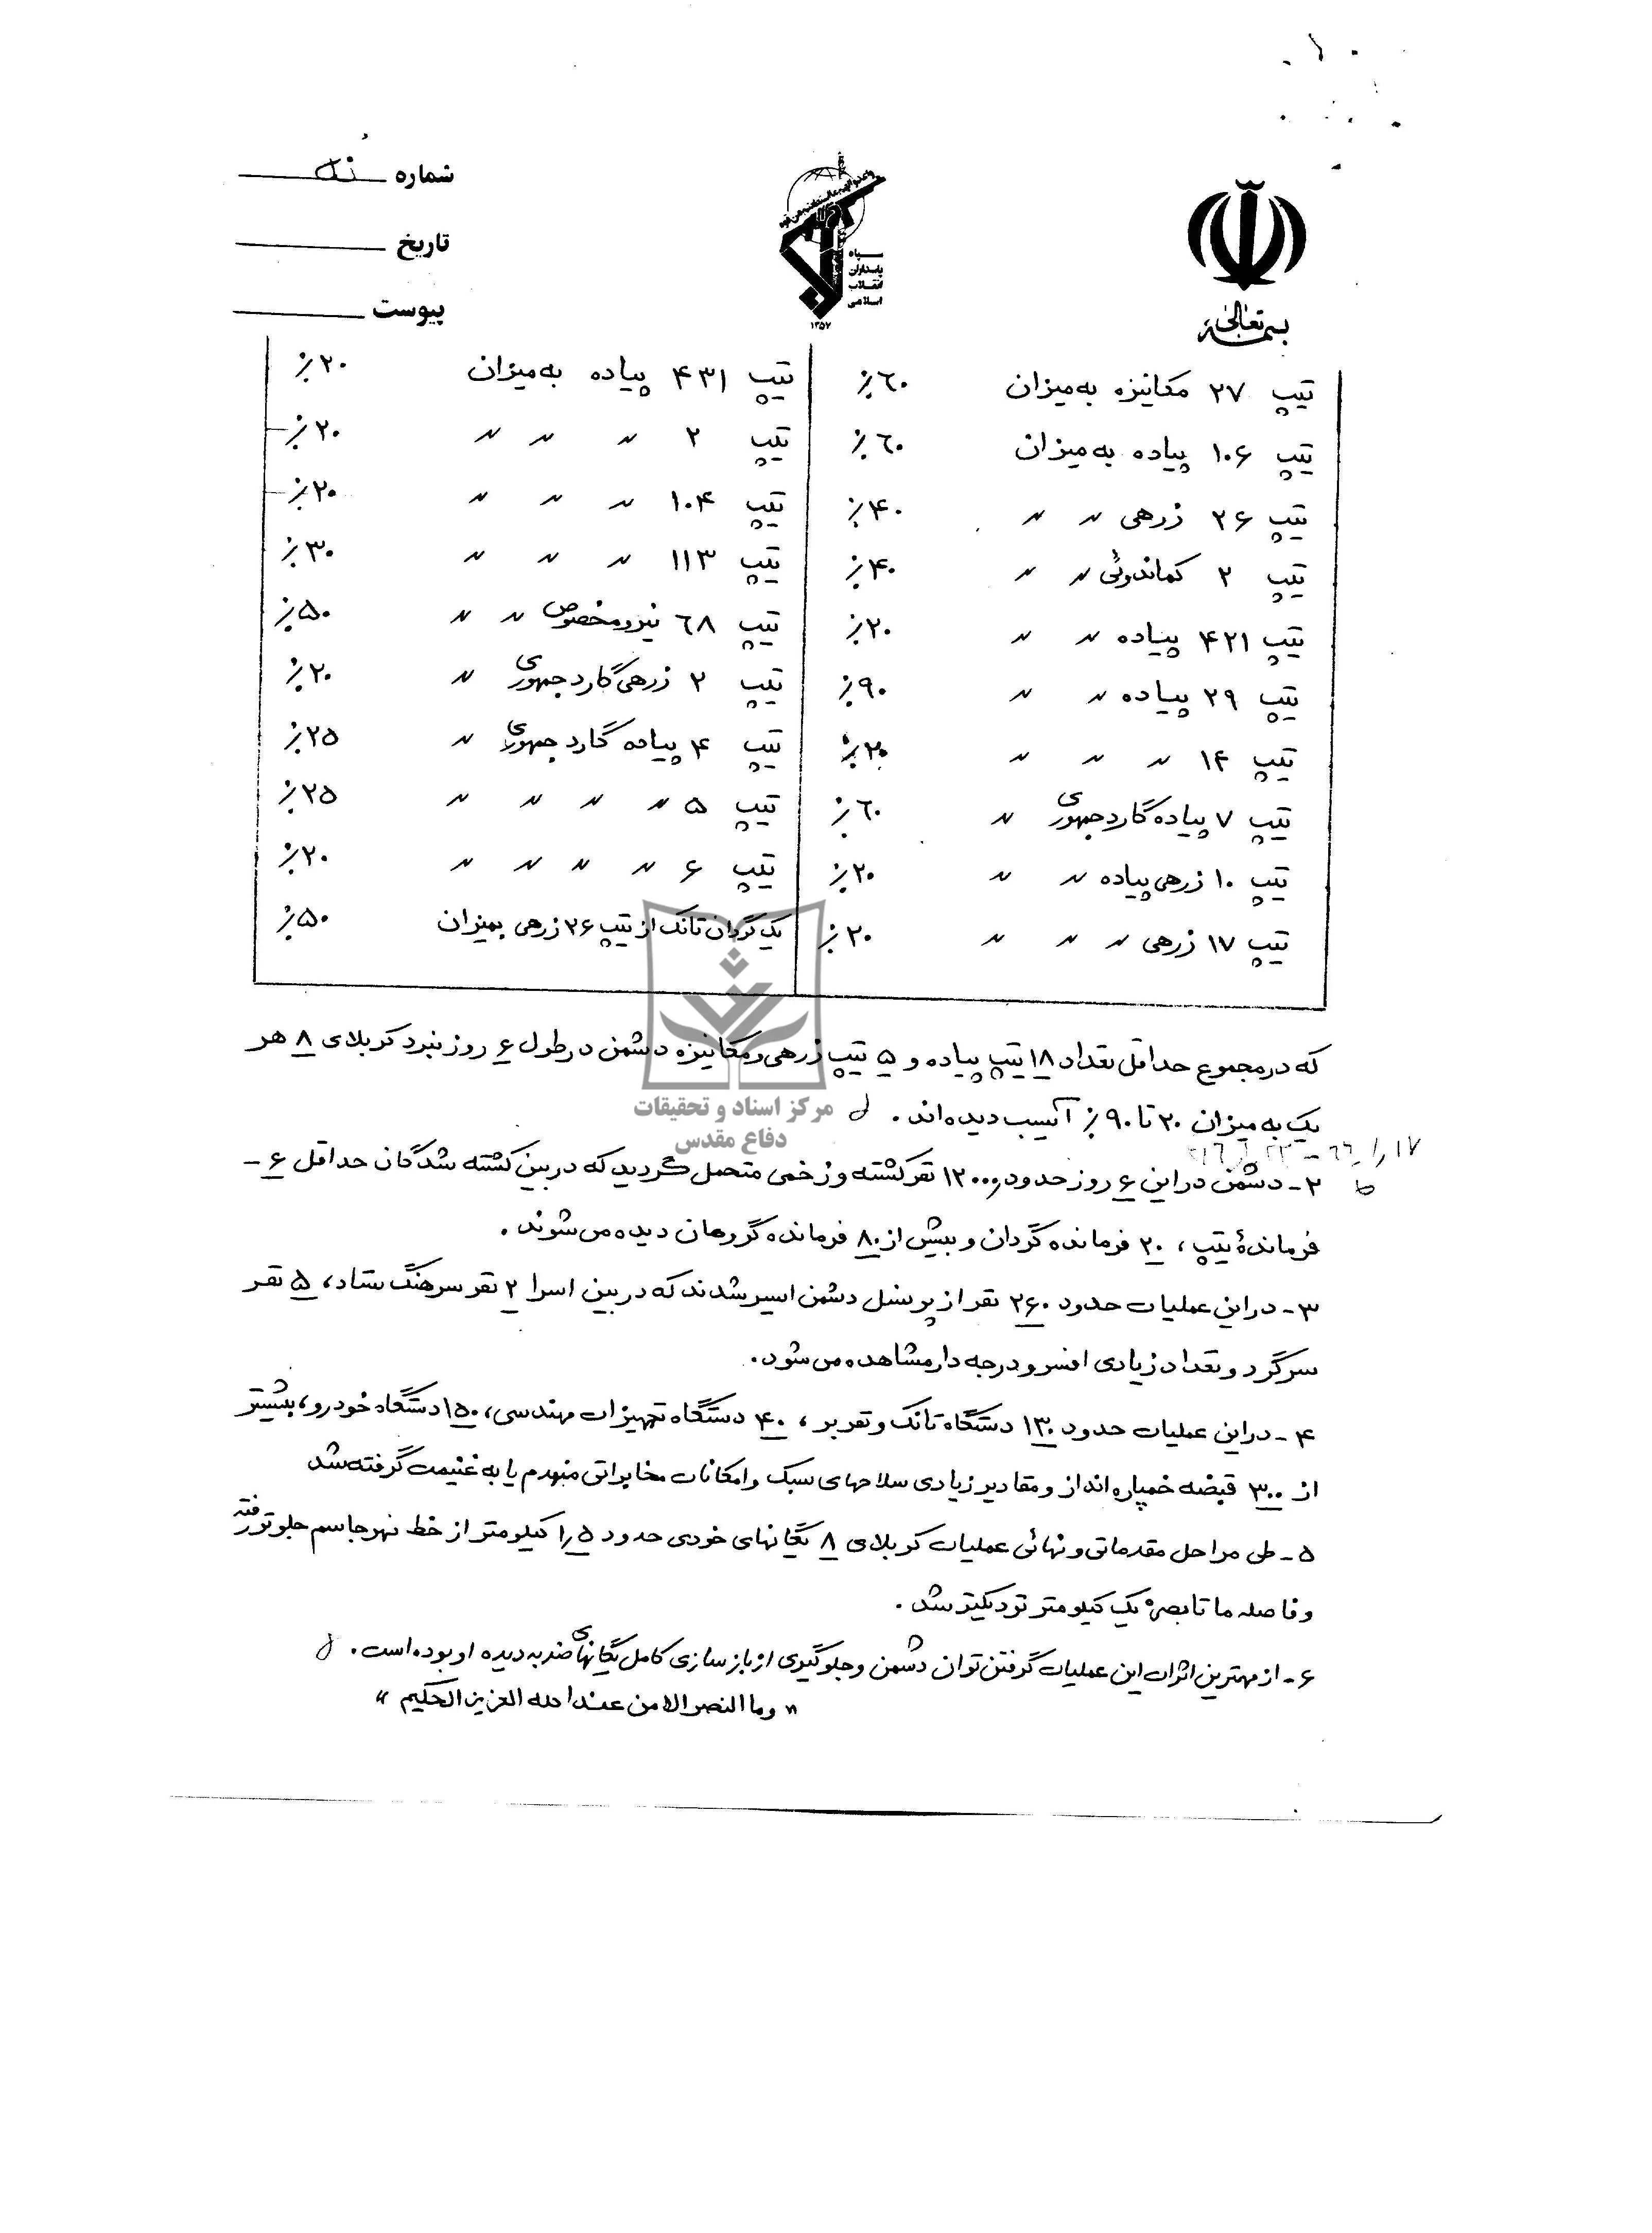 شماره
تاریخ
پیوست
سپاه
پاسداران
انقلاب
اسلامی
۱۳۵۷
بسمه تعالی
تیپ ۲۷ مکانیزه به میزان ۶۰٪
تیپ ۱۰۶ پیاده به میزان ۶۰٪
تیپ ۲۶ زرهی 〃 〃 ۴۰٪
تیپ ۲ کماندوئی 〃 〃 ۴۰٪
تیپ ۴۲۱ پیاده 〃 〃 ۲۰٪
تیپ ۲۹ پیاده 〃 〃 ۹۰٪
تیپ ۱۴ 〃 〃 〃 ۲۰٪
تیپ ۷ پیاده گارد جمهوری 〃 ۶۰٪
تیپ ۱۰ زرهی پیاده 〃 〃 ۲۰٪
تیپ ۱۷ زرهی 〃 〃 〃 ۲۰٪
تیپ ۴۳۱ پیاده به میزان ۲۰٪
تیپ ۲ 〃 〃 〃 ۲۰٪
تیپ ۱۰۴ 〃 〃 〃 ۲۰٪
تیپ ۱۱۳ 〃 〃 〃 ۳۰٪
تیپ ۶۸ نیرو مخصوص 〃 〃 ۵۰٪
تیپ ۲ زرهی گارد جمهوری 〃 ۲۰٪
تیپ ۴ پیاده گارد جمهوری 〃 ۲۵٪
تیپ ۵ 〃 〃 〃 〃 ۲۵٪
تیپ ۶ 〃 〃 〃 〃 ۲۰٪
یک گردان تانک از تیپ ۲۶ زرهی بمیزان ۵۰٪
که در مجموع حداقل تعداد ۱۸ تیپ پیاده و ۵ تیپ زرهی و مکانیزه دشمن در طول ۶ روز نبرد کربلای ۸ هر
یک به میزان ۲۰ تا ۹۰٪ آسیب دیده‌اند.
مرکز اسناد و تحقیقات
دفاع مقدس
۲- دشمن در این ۶ روز حدود ۱۲۰۰۰ نفر کشته و زخمی متحمل گردید که در بین کشته شدگان حداقل ۶-
فرماندهٔ تیپ، ۲۰ فرمانده گردان و بیش از ۸۰ فرمانده گروهان دیده می‌شوند.
۳- در این عملیات حدود ۲۶۰ نفر از پرسنل دشمن اسیر شدند که در بین اسرا ۲ نفر سرهنگ ستاد، ۵ نفر
سرگرد و تعداد زیادی افسر و درجه دار مشاهده می‌شود.
۴- در این عملیات حدود ۱۳۰ دستگاه تانک و نفربر، ۴۰ دستگاه تجهیزات مهندسی، ۱۵۰ دستگاه خودرو، بیشتر
از ۳۰۰ قبضه خمپاره انداز و مقادیر زیادی سلاحهای سبک و امکانات مخابراتی منهدم یا به غنیمت گرفته شد
۵- طی مراحل مقدماتی و نهائی عملیات کربلای ۸ یگانهای خودی حدود ۱٫۵ کیلومتر از خط نهر جاسم جلوتر رفته
و فاصله ما تا بصره یک کیلومتر نزدیکتر شد.
۶- از مهمترین اثرات این عملیات گرفتن توان دشمن و جلوگیری از بازسازی کامل یگانهای ضربه دیده او بوده است.
"وما النصر الا من عند الله العزیز الحکیم"